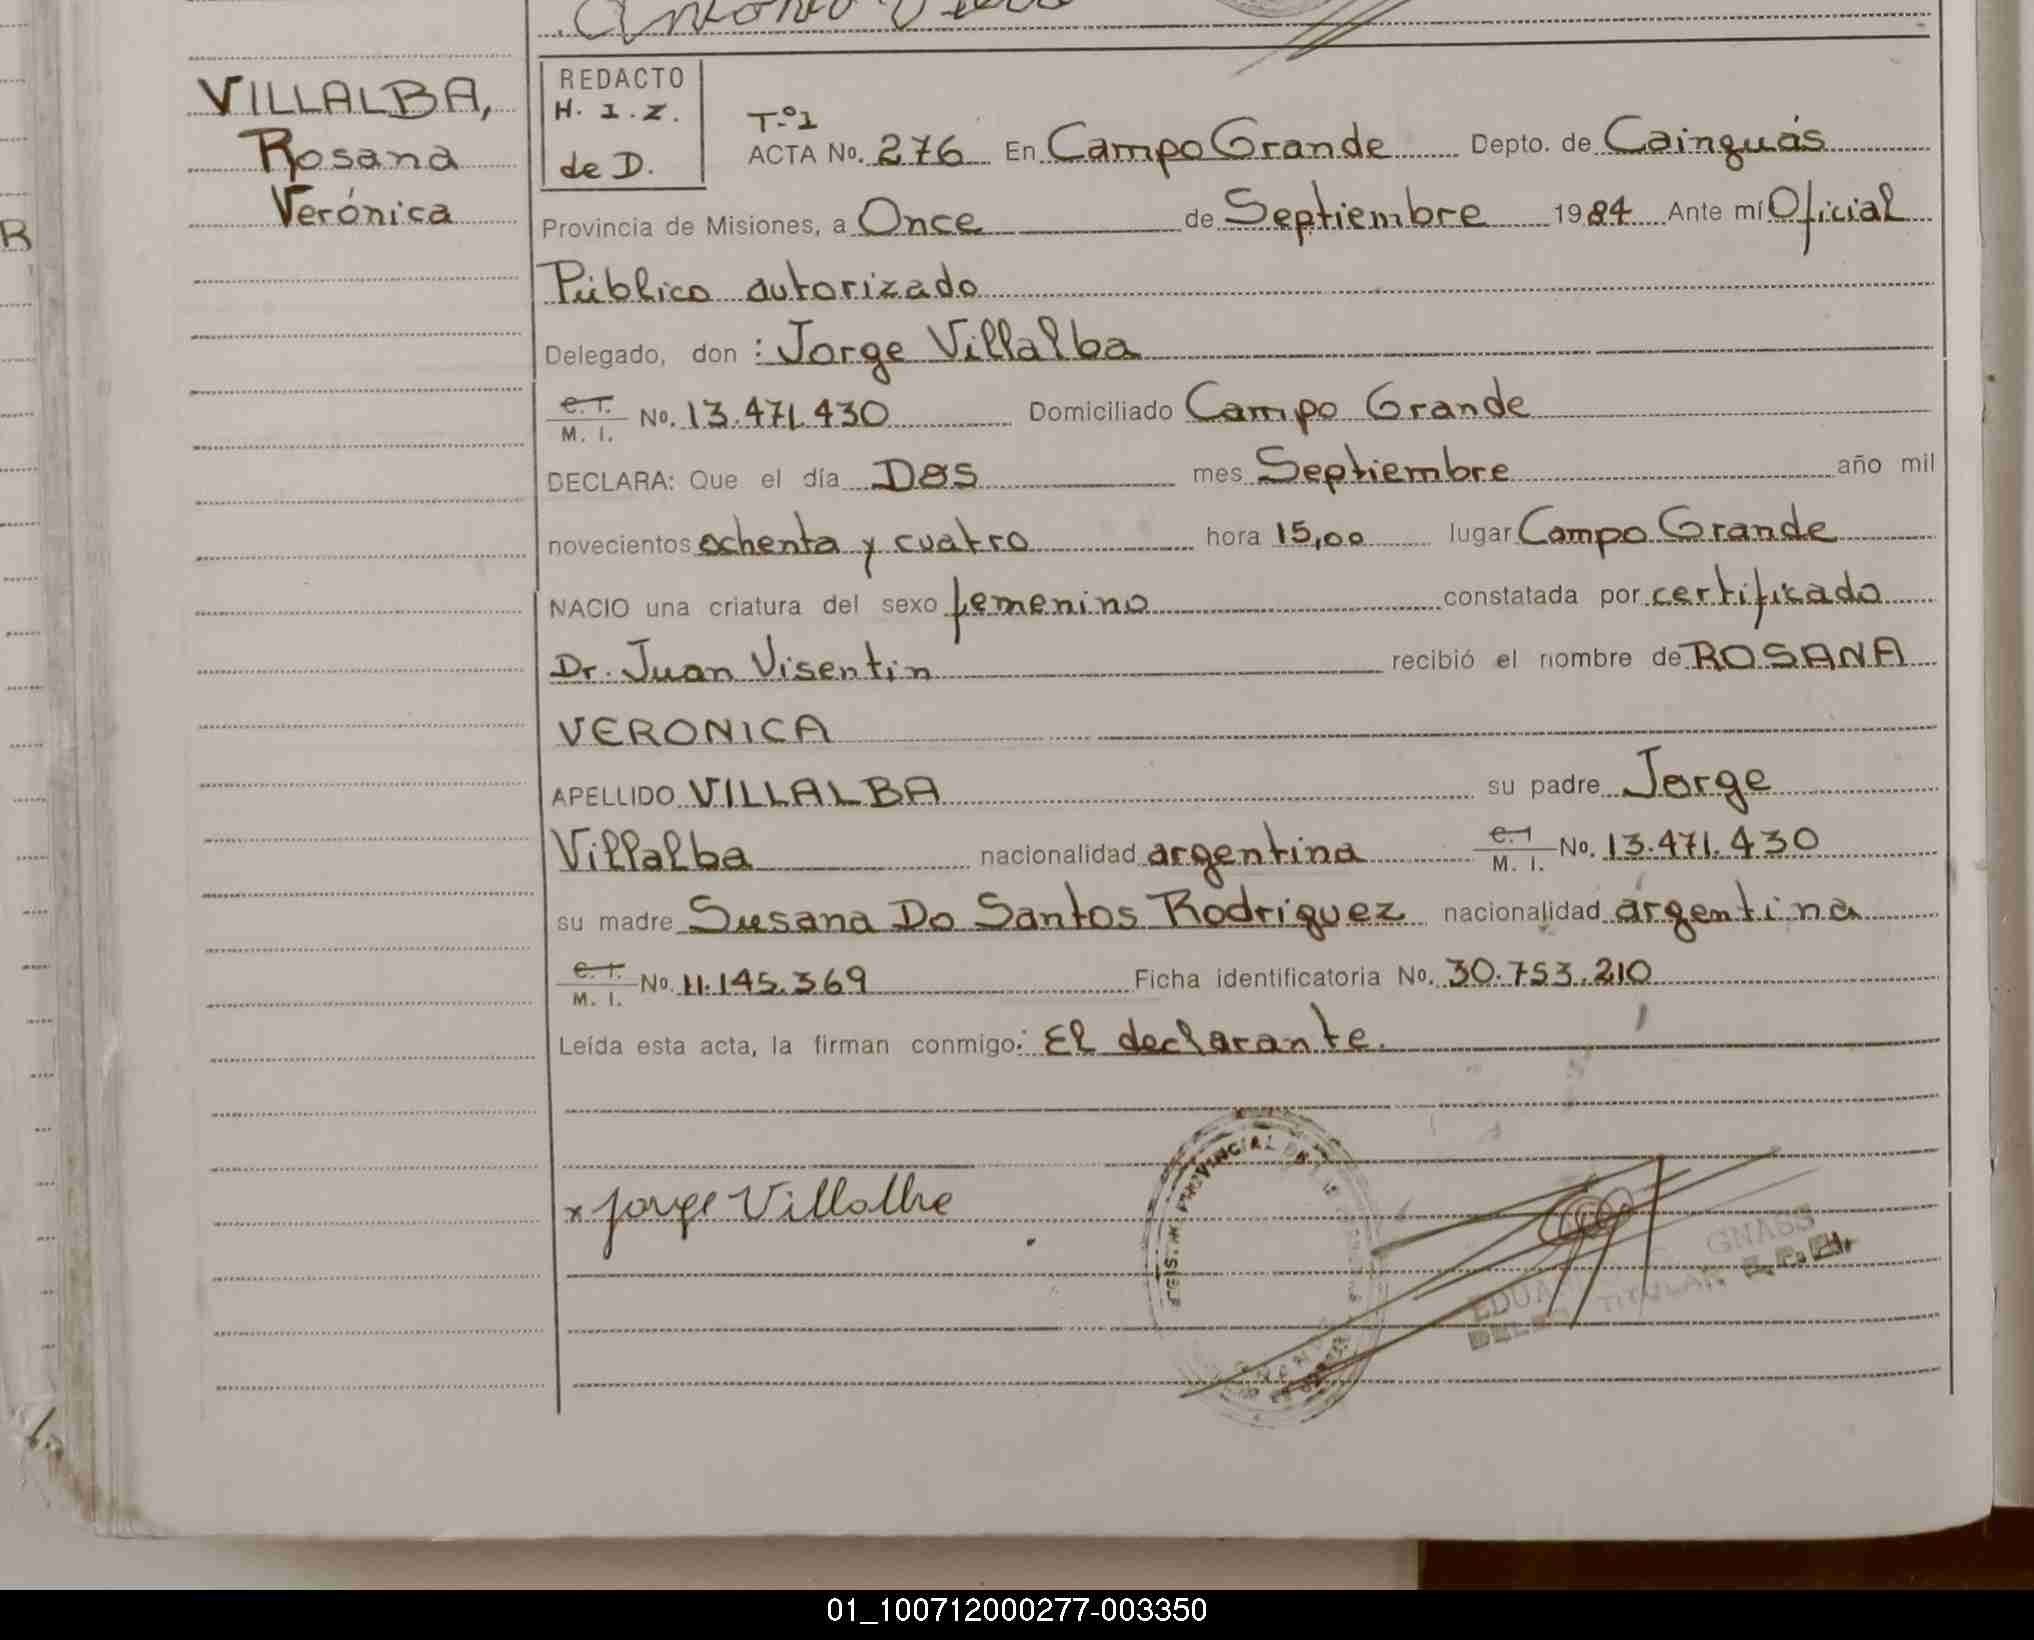 VILLALBA,
Rosana
Verónica
REDACTO
H. I. Z.
de D.
T.º 1
ACTA No. 276 En Campo Grande Depto. de Cainguás
Provincia de Misiones, a Once de Septiembre 1984 Ante mí Oficial
Público autorizado
Delegado, don : Jorge Villalba
C. I.
M. I. No. 13.471.430 Domiciliado Campo Grande
DECLARA: Que el día Dos mes Septiembre año mil
novecientos ochenta y cuatro hora 15,00 lugar Campo Grande
NACIO una criatura del sexo femenino constatada por certificado
Dr. Juan Visentin recibió el nombre de ROSANA
VERONICA
APELLIDO VILLALBA su padre Jorge
Villalba nacionalidad argentina C. I. M. I. No. 13.471.430
su madre Susana Do Santos Rodriguez nacionalidad argentina
C. I.
M. I. No. 11.145.369 Ficha identificatoria No. 30.753.210
Leída esta acta, la firman conmigo: El declarante.
x Jorge Villalba
PROVINCIAL
GNASS
TITULAR
R
01_100712000277-003350